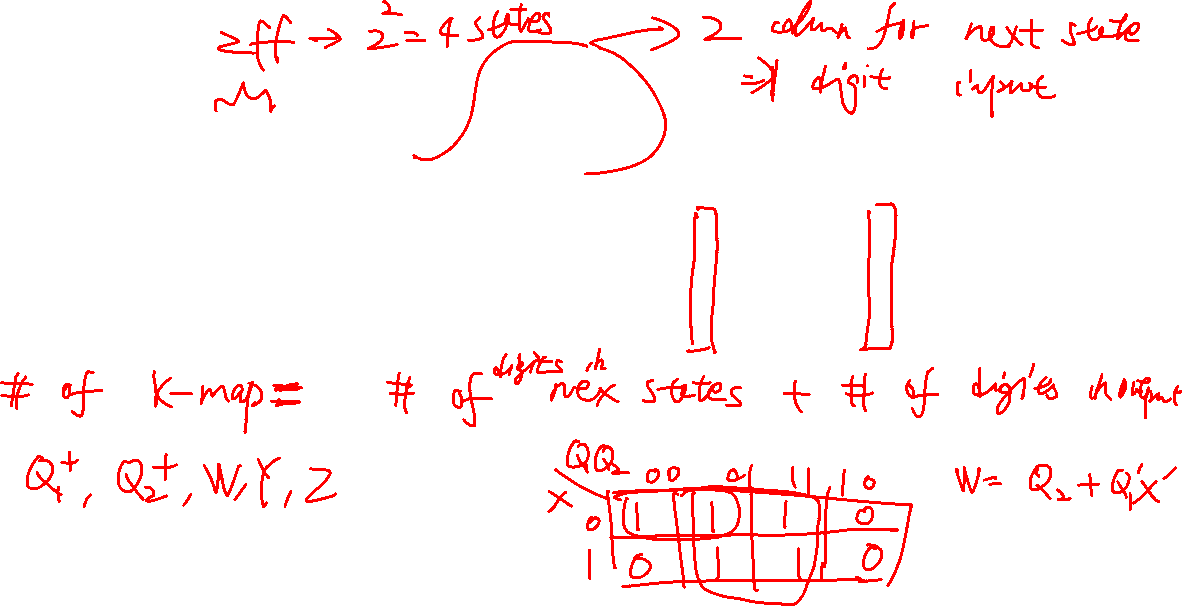 2ff → 2² = 4 states → 2 column for next state
⇒ 1 digit input
# of K-map = # of digits in nex states + # of digits in output
Q₁⁺, Q₂⁺, W, Y, Z
Q₁Q₂ 00 01 11 10 W = Q₂ + Q₁'X'
X
0 1 1 1 0
1 0 1 1 0